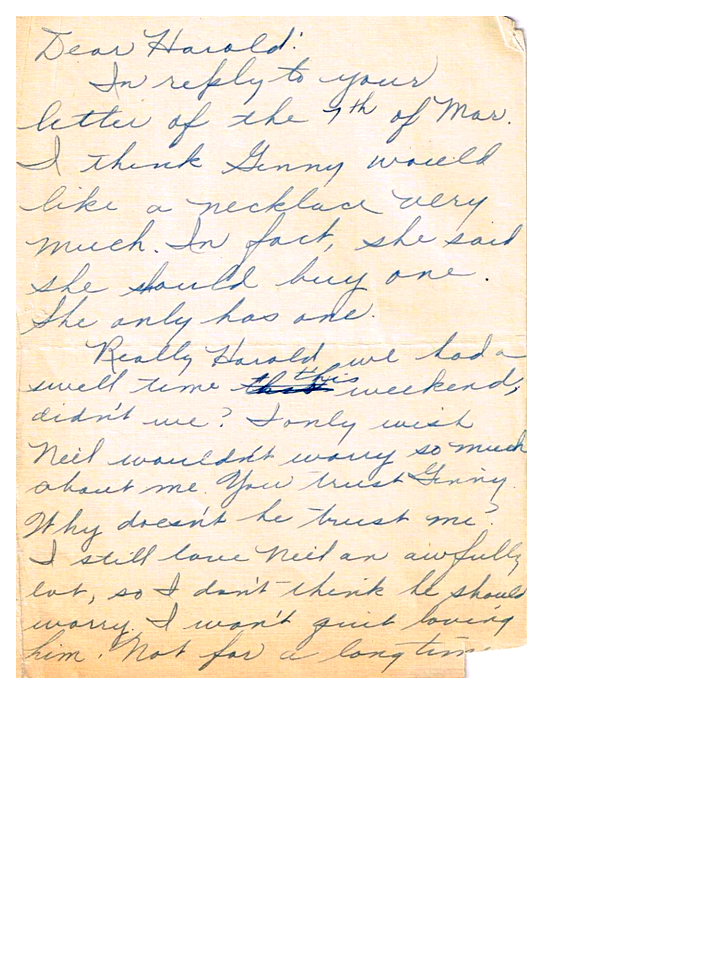 Dear Harold:
In reply to your
letter of the 7th of Mar.
I think Ginny would
like a necklace very
much. In fact, she said
she should buy one.
She only has one.
Really Harold we had a
swell time this weekend,
didn't we? I only wish
Neil wouldn't worry so much
about me. You trust Ginny.
Why doesn't he trust me?
I still love Neil an awfully
lot, so I don't think he should
worry. I won't quit loving
him. Not for a long time